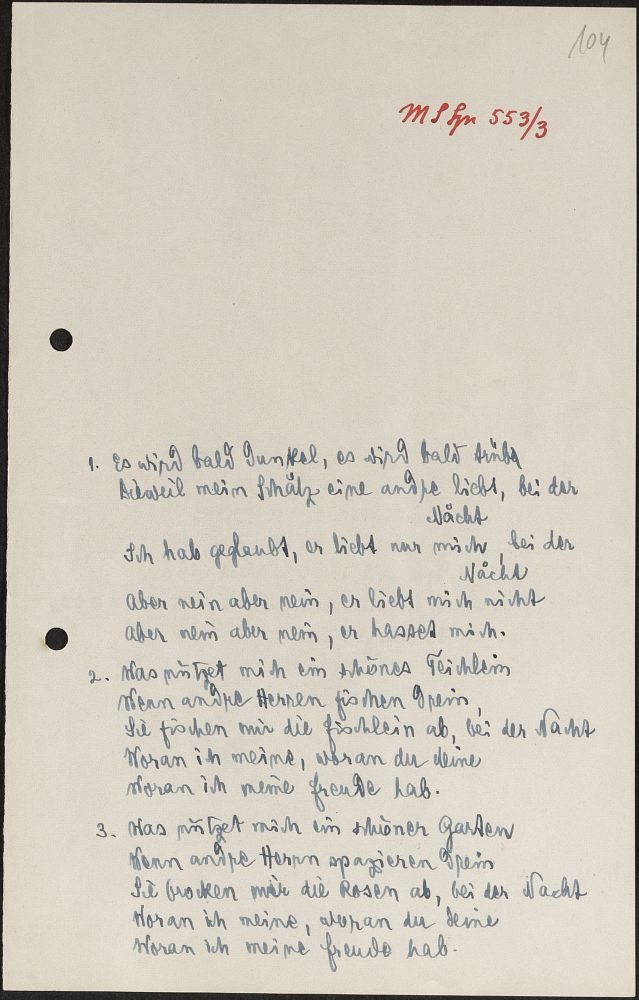 104
553/3
1. Es wird bald dunkel, es wird bald trübe
Dieweil mein Schåtz eine andre liebt, bei der
Nåcht
Ich hab geglaubt, er liebt nur mich, bei der
Nåcht
Aber nein aber nein, er liebt mich nicht
Aber nein aber nein, er hasset mich.
2. Was nützet mich ein schönes Teichlein
Wenn andre Herren fischen drein,
Sie fischen mir die Fischlein ab, bei der Nacht
Woran ich meine, woran du deine
Woran ich meine Freude hab.
3. Was nützet mich ein schöner Garten
Wenn andre Herrn spazieren drein
Sie brocken mir die Rosen ab, bei der Nacht
Woran ich meine, woran du deine
Woran ich meine Freude hab.